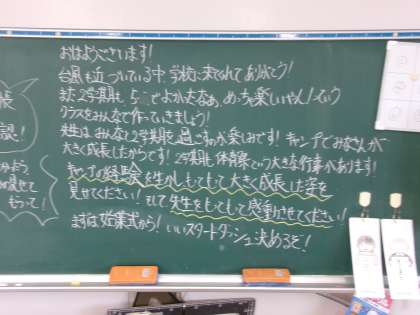 おはようございます!
台風も近づいている中、学校に来てくれてありがとう!
また2学期も5-こでよかったなぁ、めっちゃ楽しいやん!という
クラスをみんなで作っていきましょう!
先生はみんなと2学期を過ごすのが楽しみです!キャンプでみなさんが
大きく成長したからです!2学期も体育祭という大きな行事があります!
キャンプの経験を生かしもてして大きく成長した姿を
見せてください!そして先生をもてもして感動させてください!
まずは始業式から!いいスタートダッシュ決めるぞ!
張
認!
見せて
もって!